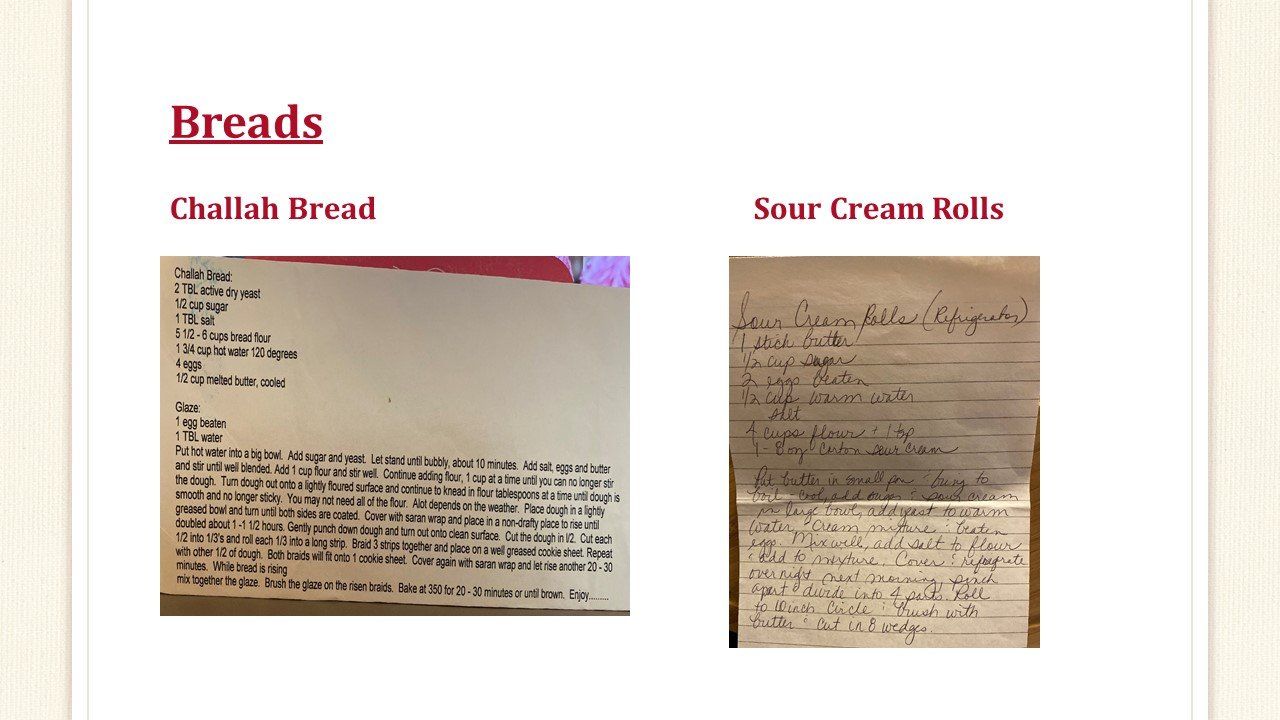 Breads
Challah Bread
Challah Bread:
2 TBL active dry yeast
1/2 cup sugar
1 TBL salt
5 1/2 - 6 cups bread flour
1 3/4 cup hot water 120 degrees
4 eggs
1/2 cup melted butter, cooled
Glaze:
1 egg beaten
1 TBL water
Put hot water into a big bowl. Add sugar and yeast. Let stand until bubbly, about 10 minutes. Add salt, eggs and butter
and stir until well blended. Add 1 cup flour and stir well. Continue adding flour, 1 cup at a time until you can no longer stir
the dough. Turn dough out onto a lightly floured surface and continue to knead in flour tablespoons at a time until dough is
smooth and no longer sticky. You may not need all of the flour. Alot depends on the weather. Place dough in a lightly
greased bowl and turn until both sides are coated. Cover with saran wrap and place in a non-drafty place to rise until
doubled about 1 -1 1/2 hours. Gently punch down dough and turn out onto clean surface. Cut the dough in l/2. Cut each
1/2 into 1/3's and roll each 1/3 into a long strip. Braid 3 strips together and place on a well greased cookie sheet. Repeat
with other 1/2 of dough. Both braids will fit onto 1 cookie sheet. Cover again with saran wrap and let rise another 20 - 30
minutes. While bread is rising
mix together the glaze. Brush the glaze on the risen braids. Bake at 350 for 20 - 30 minutes or until brown. Enjoy.........
Sour Cream Rolls
Sour Cream Rolls (Refrigerator)
1 stick butter
1/2 cup sugar
2 eggs beaten
1/2 cup warm water
salt
4 cups flour + 1 tsp
1 - 8 oz carton sour cream
Put butter in small pan bring to
boil cool, add sugar & sour cream
in large bowl, add yeast to warm
water, cream mixture & beaten
egg. Mix well, add salt to flour
& add to mixture. Cover & refrigerate
overnight next morning punch
apart divide into 4 parts. Roll
to inch circle & brush with
butter & cut in 8 wedges.